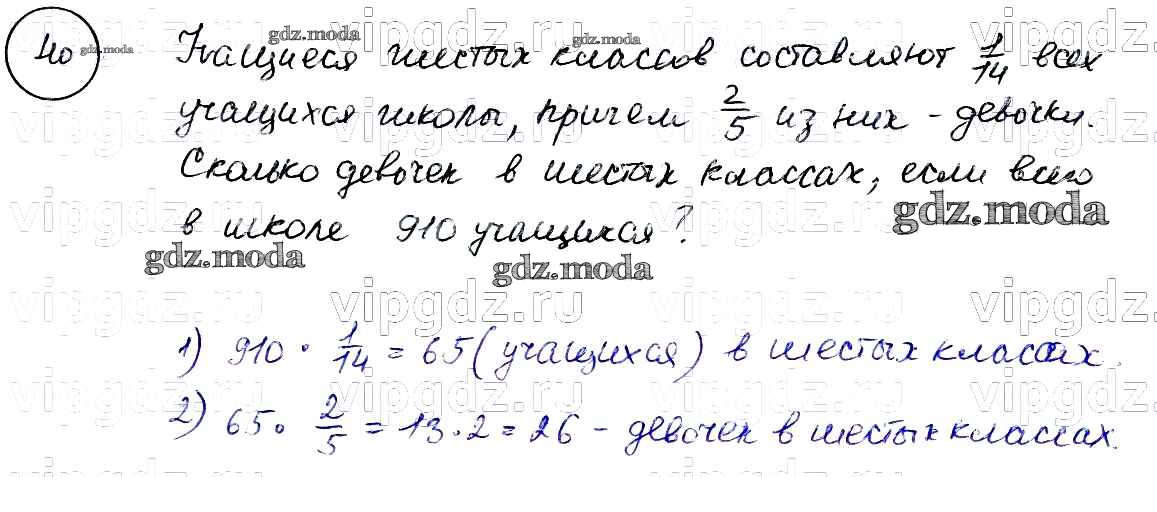 40 Учащиеся шестых классов составляют 1/14 всех
учащихся школы, причем 2/5 из них - девочки.
Сколько девочек в шестых классах, если всего
в школе 910 учащихся?
1) 910 · 1/14 = 65 (учащихся) в шестых классах.
2) 65 · 2/5 = 13 · 2 = 26 - девочек в шестых классах.
gdz.moda
gdz.moda
gdz.moda
gdz.moda
gdz.moda
gdz.moda
vipgdz.ru